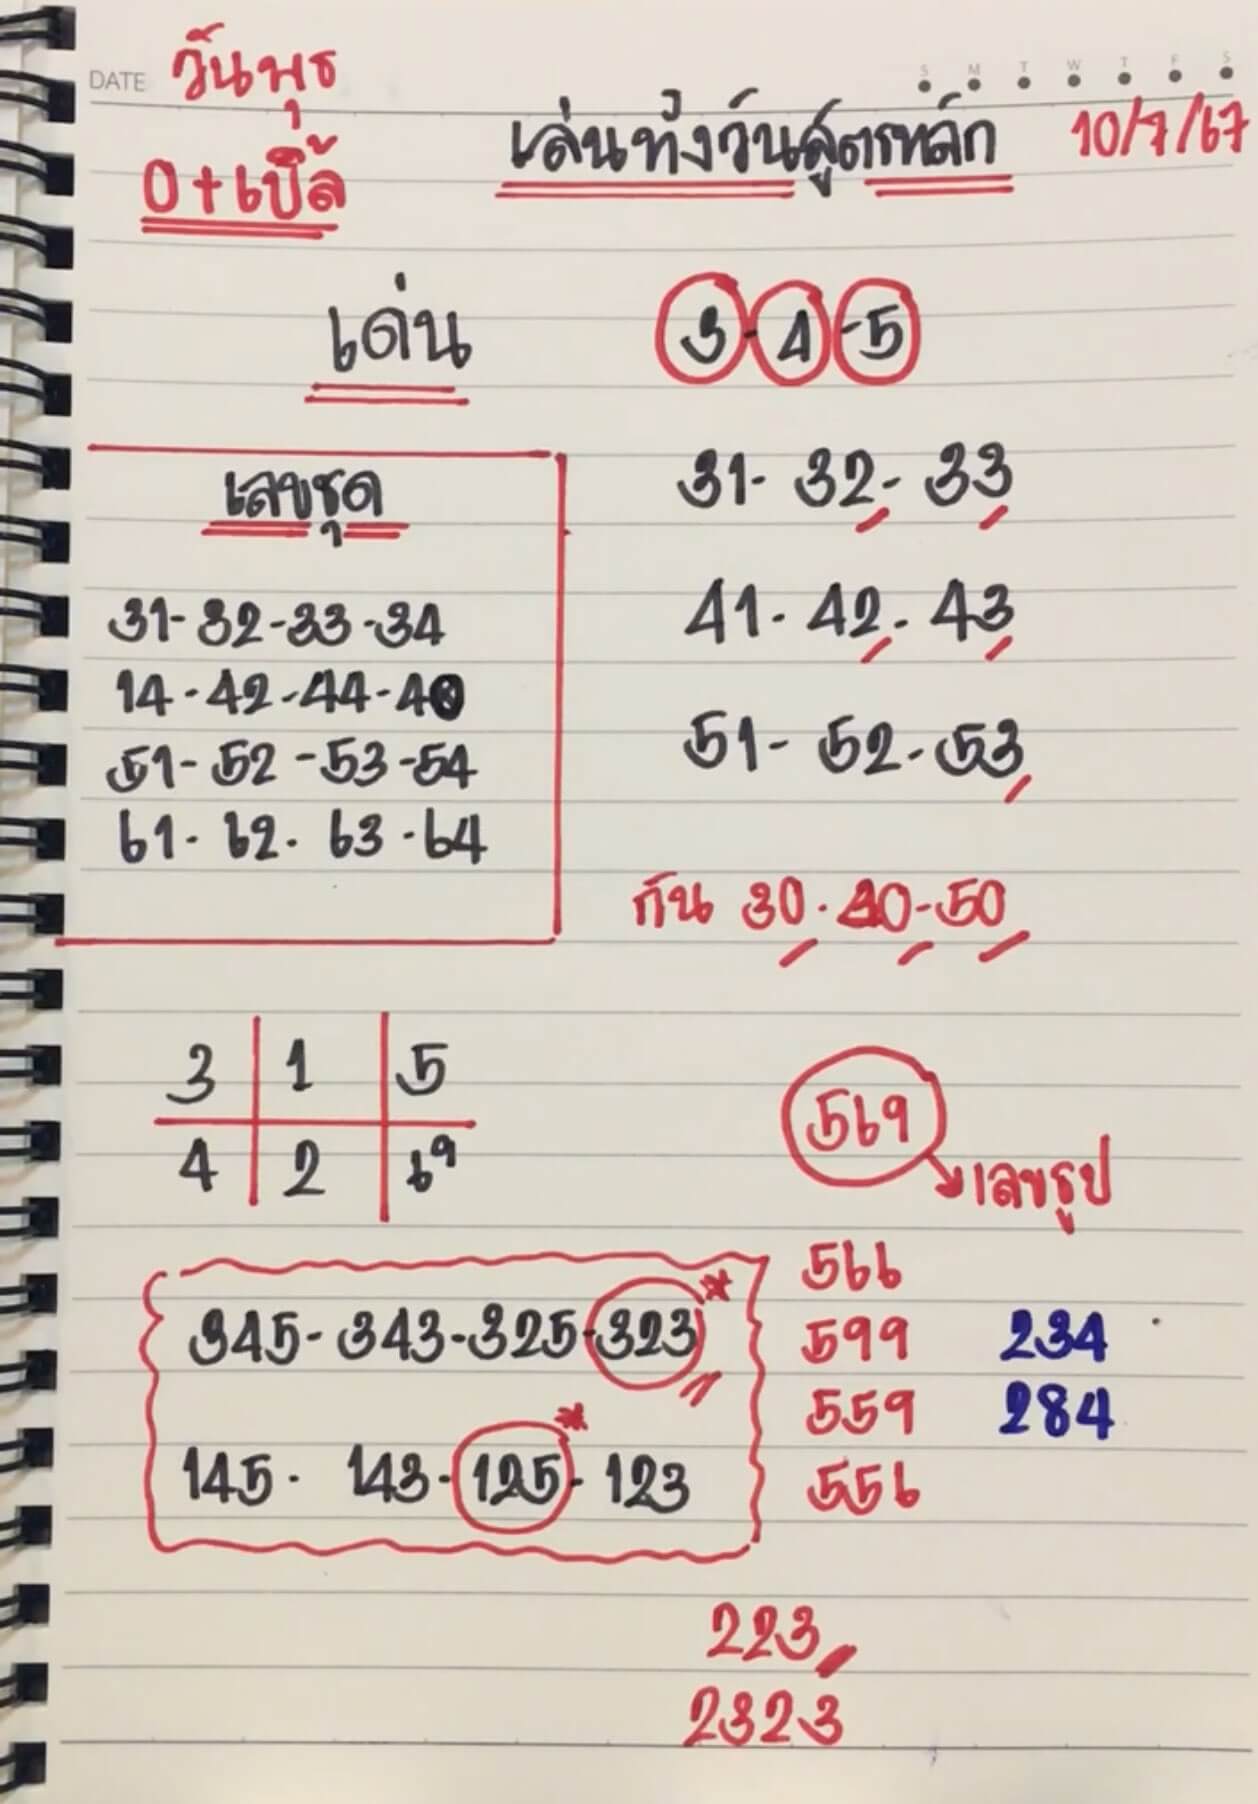 DATE วันพุธ
S M T W T F S
เล่นทั้งวันสูตรหลัก 10/7/67
0+เบิ้ล
เด่น 3-4-5
เลขชุด
31-32-33-34
14-42-44-40
51-52-53-54
61-62-63-64
31-32-33
41-42-43
51-52-53
กัน 30-40-50
3 1 5
4 2 6 9
569
เลขธูป
566
599 234
559 284
556
345-343-325-323*
145-143-125*-123
223
2323